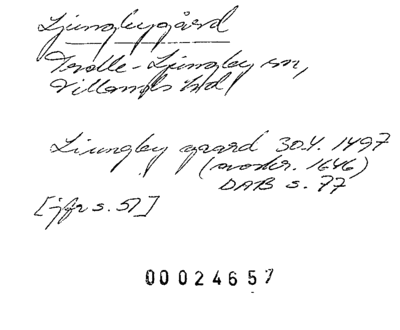 Ljungbygård
Trolle-Ljungby sn,
Villands hd
Liungby gaard 30.4. 1497
(avskr. 1646)
DAB s. 77
[jfr s. 51]
00024657